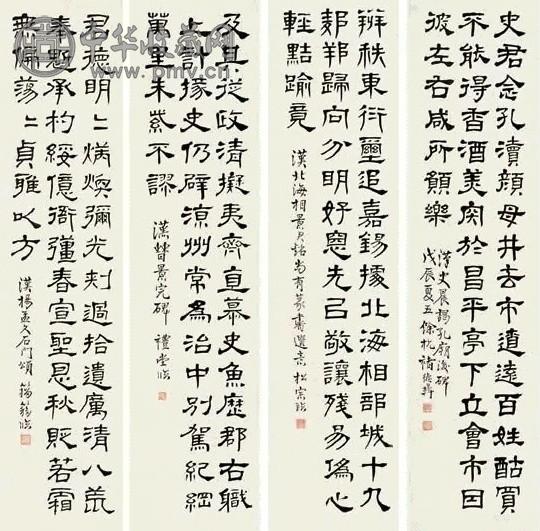 史君念孔瀆顏母井去市遼遠百姓酤買
不能得香酒美肉於昌平亭下立會市因
彼左右咸所願樂
漢史晨謁孔廟後碑
戊辰夏五餘杭褚德彝
辨秩東衍璽追嘉錫據北海相部城十九
鄰邦歸向分明好惡先以敬讓殘易偽心
輕黠踰竟 漢北海相景君銘尚有篆書遺意 松窗臨
及其從政清擬夷齊直慕史魚歷郡右職
上計掾史仍辟涼州常為治中別駕紀綱
萬里朱紫不謬 漢曹景完碑 禮堂臨
君德明〻炳煥彌光刺過拾遺厲清八荒
奉魁承杓綏億衙彊春宣聖恩秋貶若霜
無偏蕩〻貞雅以方 漢楊孟文石門頌
中华收藏网
www.pmv.cn